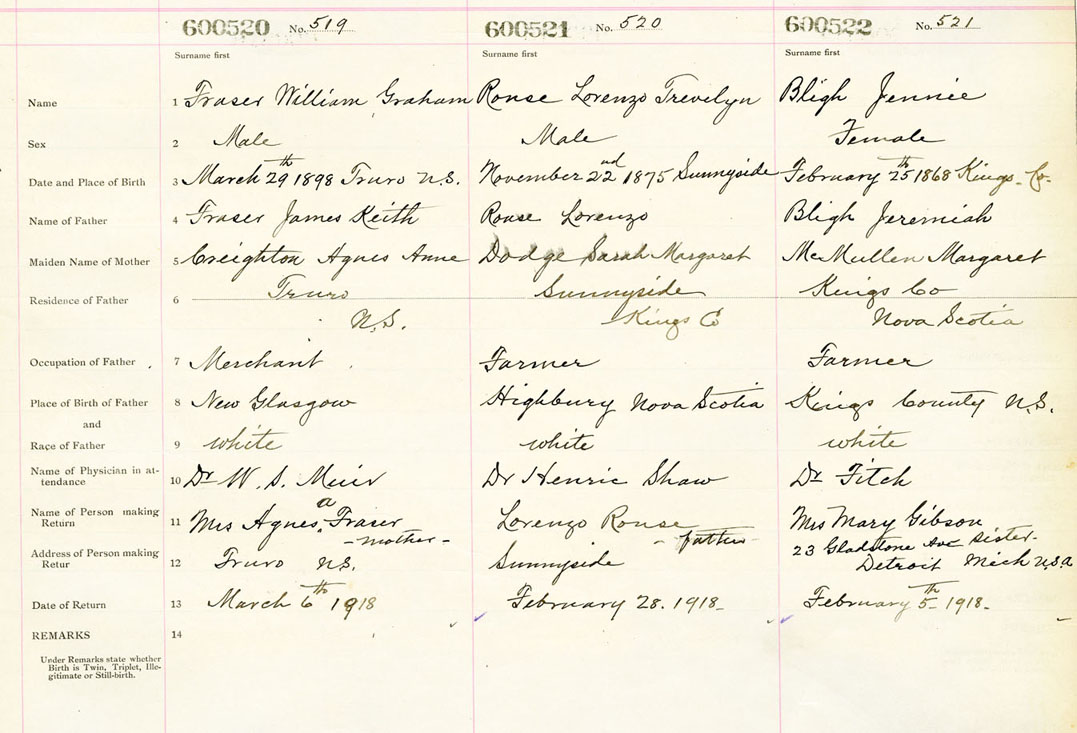 600520 No. 519 600521 No. 520 600522 No. 521
Surname first Surname first Surname first
Name 1 Fraser William Graham Rouse Lorenzo Trevelyn Bligh Jennie
Sex 2 Male Male Female
Date and Place of Birth 3 March 29th 1898 Truro N.S. November 22nd 1875 Sunnyside February 25th 1868 Kings Co.
Name of Father 4 Fraser James Keith Rouse Lorenzo Bligh Jeremiah
Maiden Name of Mother 5 Creighton Agnes Anne Dodge Sarah Margaret McMullen Margaret
Residence of Father 6 Truro Sunnyside Kings Co
N.S. Kings Co Nova Scotia
Occupation of Father 7 Merchant Farmer Farmer
Place of Birth of Father 8 New Glasgow Highbury Nova Scotia Kings County N.S.
and
Race of Father 9 white white white
Name of Physician in at-
tendance 10 Dr W. S. Muir Dr Henrie Shaw Dr Fitch
Name of Person making
Return 11 Mrs Agnes a Fraser Lorenzo Rouse Mrs Mary Gibson
- mother - - father - Sister-
Address of Person making 23 Gladstone Ave
Retur 12 Truro N.S. Sunnyside Detroit Mich U.S.A
Date of Return 13 March 6th 1918 February 28. 1918 February 5th 1918
REMARKS 14
Under Remarks state whether
Birth is Twin, Triplet, Ille-
gitimate or Still-birth.